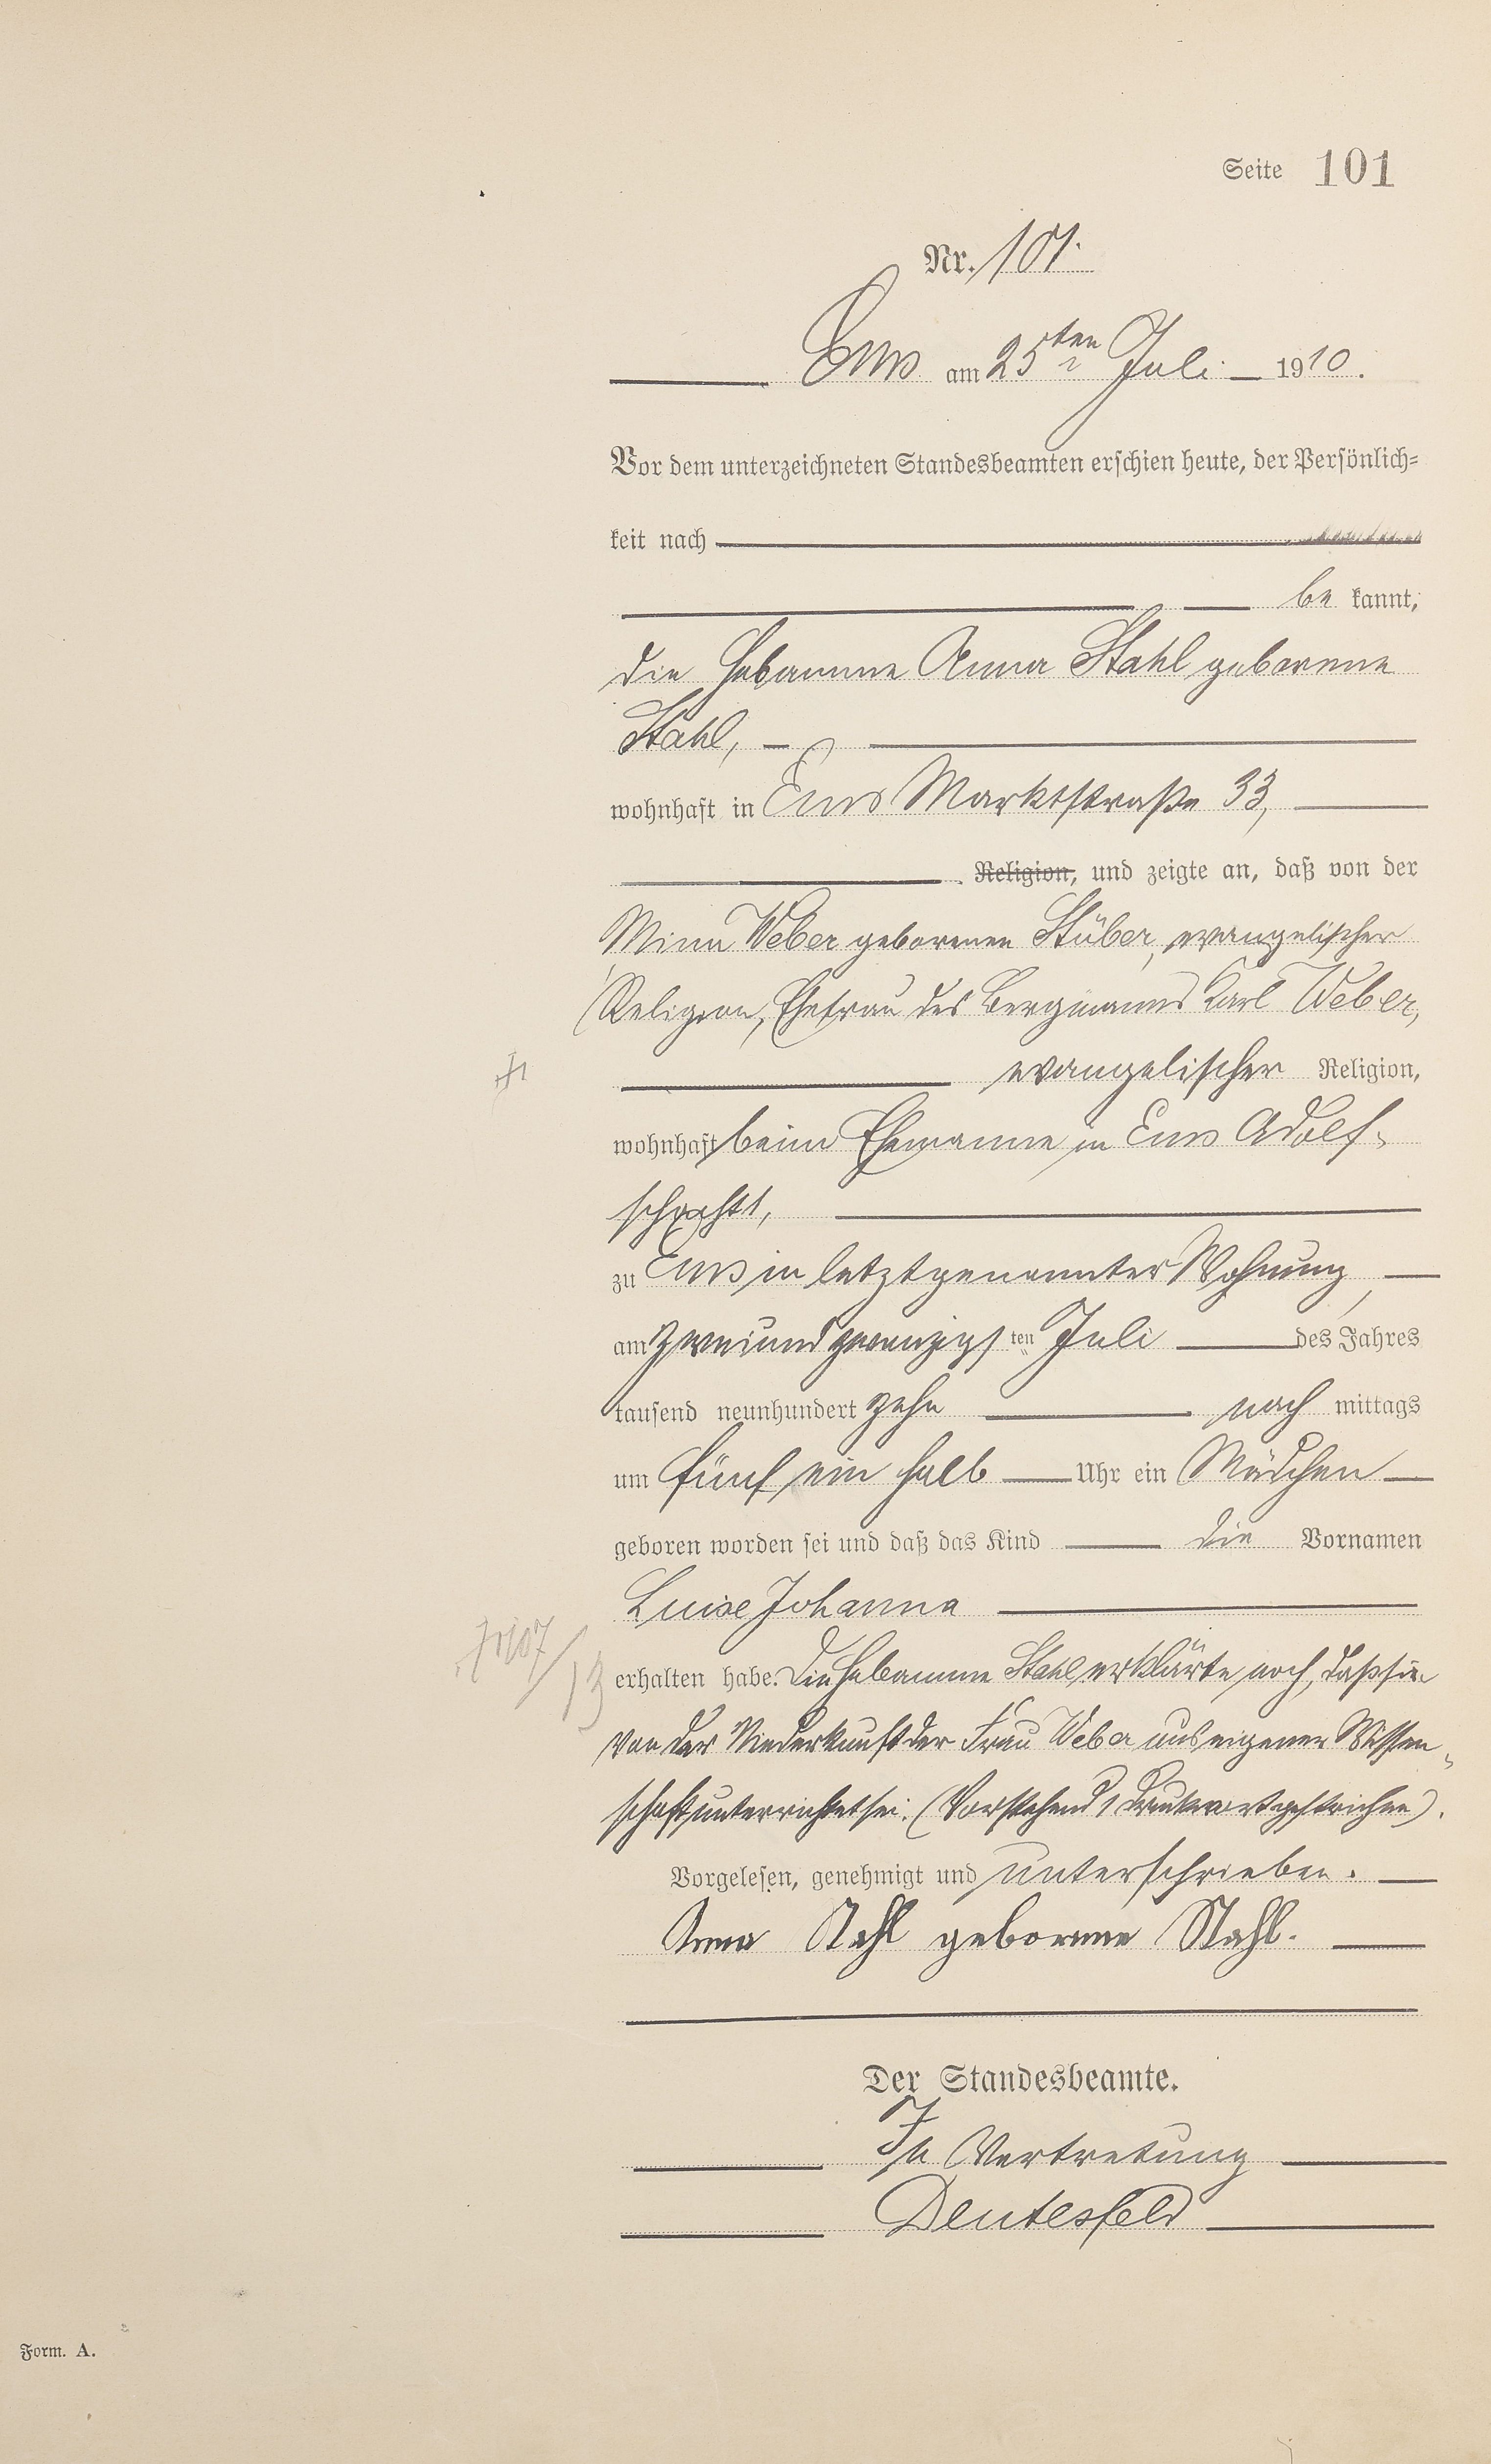 Seite 101
Nr. 101.
Ems am 25ten Juli 1910.
Vor dem unterzeichneten Standesbeamten erschien heute, der Persönlich-
keit nach
be kannt,
die Hebamme Anna Stahl geborene
Stahl,
wohnhaft in Ems Marktstraße 33,
Religion, und zeigte an, daß von der
Mina Weber geborenen Stüber, evangelischer
Religion, Ehefrau des Bergmanns Karl Weber,
evangelischer Religion,
wohnhaft beim Ehemanne in Ems Adolf-
schacht,
zu Ems in letztgenannter Wohnung,
am zweiundzwanzigsten Juli des Jahres
tausend neunhundert zehn nach mittags
um fünf ein halb Uhr ein Mädchen
geboren worden sei und daß das Kind die Vornamen
Luise Johanna
erhalten habe. Die Hebamme Stahl erklärte noch, daß sie
von der Niederkunft der Frau Weber aus eigener Wissen-
schaft unterrichtet sei. (Vorstehend 1 Druckwort gestrichen).
Vorgelesen, genehmigt und unterschrieben.
Anna Stahl geborene Stahl.
Der Standesbeamte.
In Vertretung
Form. A.